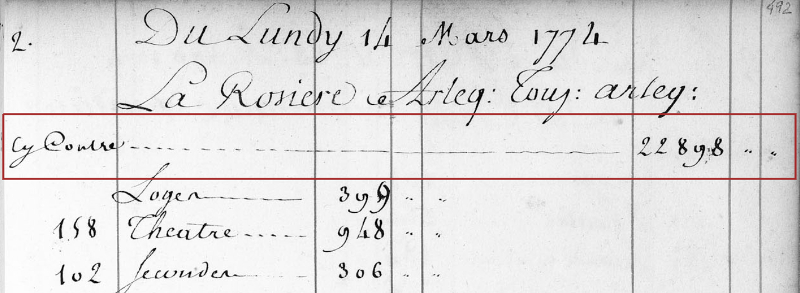 492
2. Du Lundy 14 Mars 1774
La Rosiere et Arleq: Touj: arleq:
Cy Contre 22898 " "
Loges 399 " "
158 Theatre 948 " "
102 Secondes 306 " "